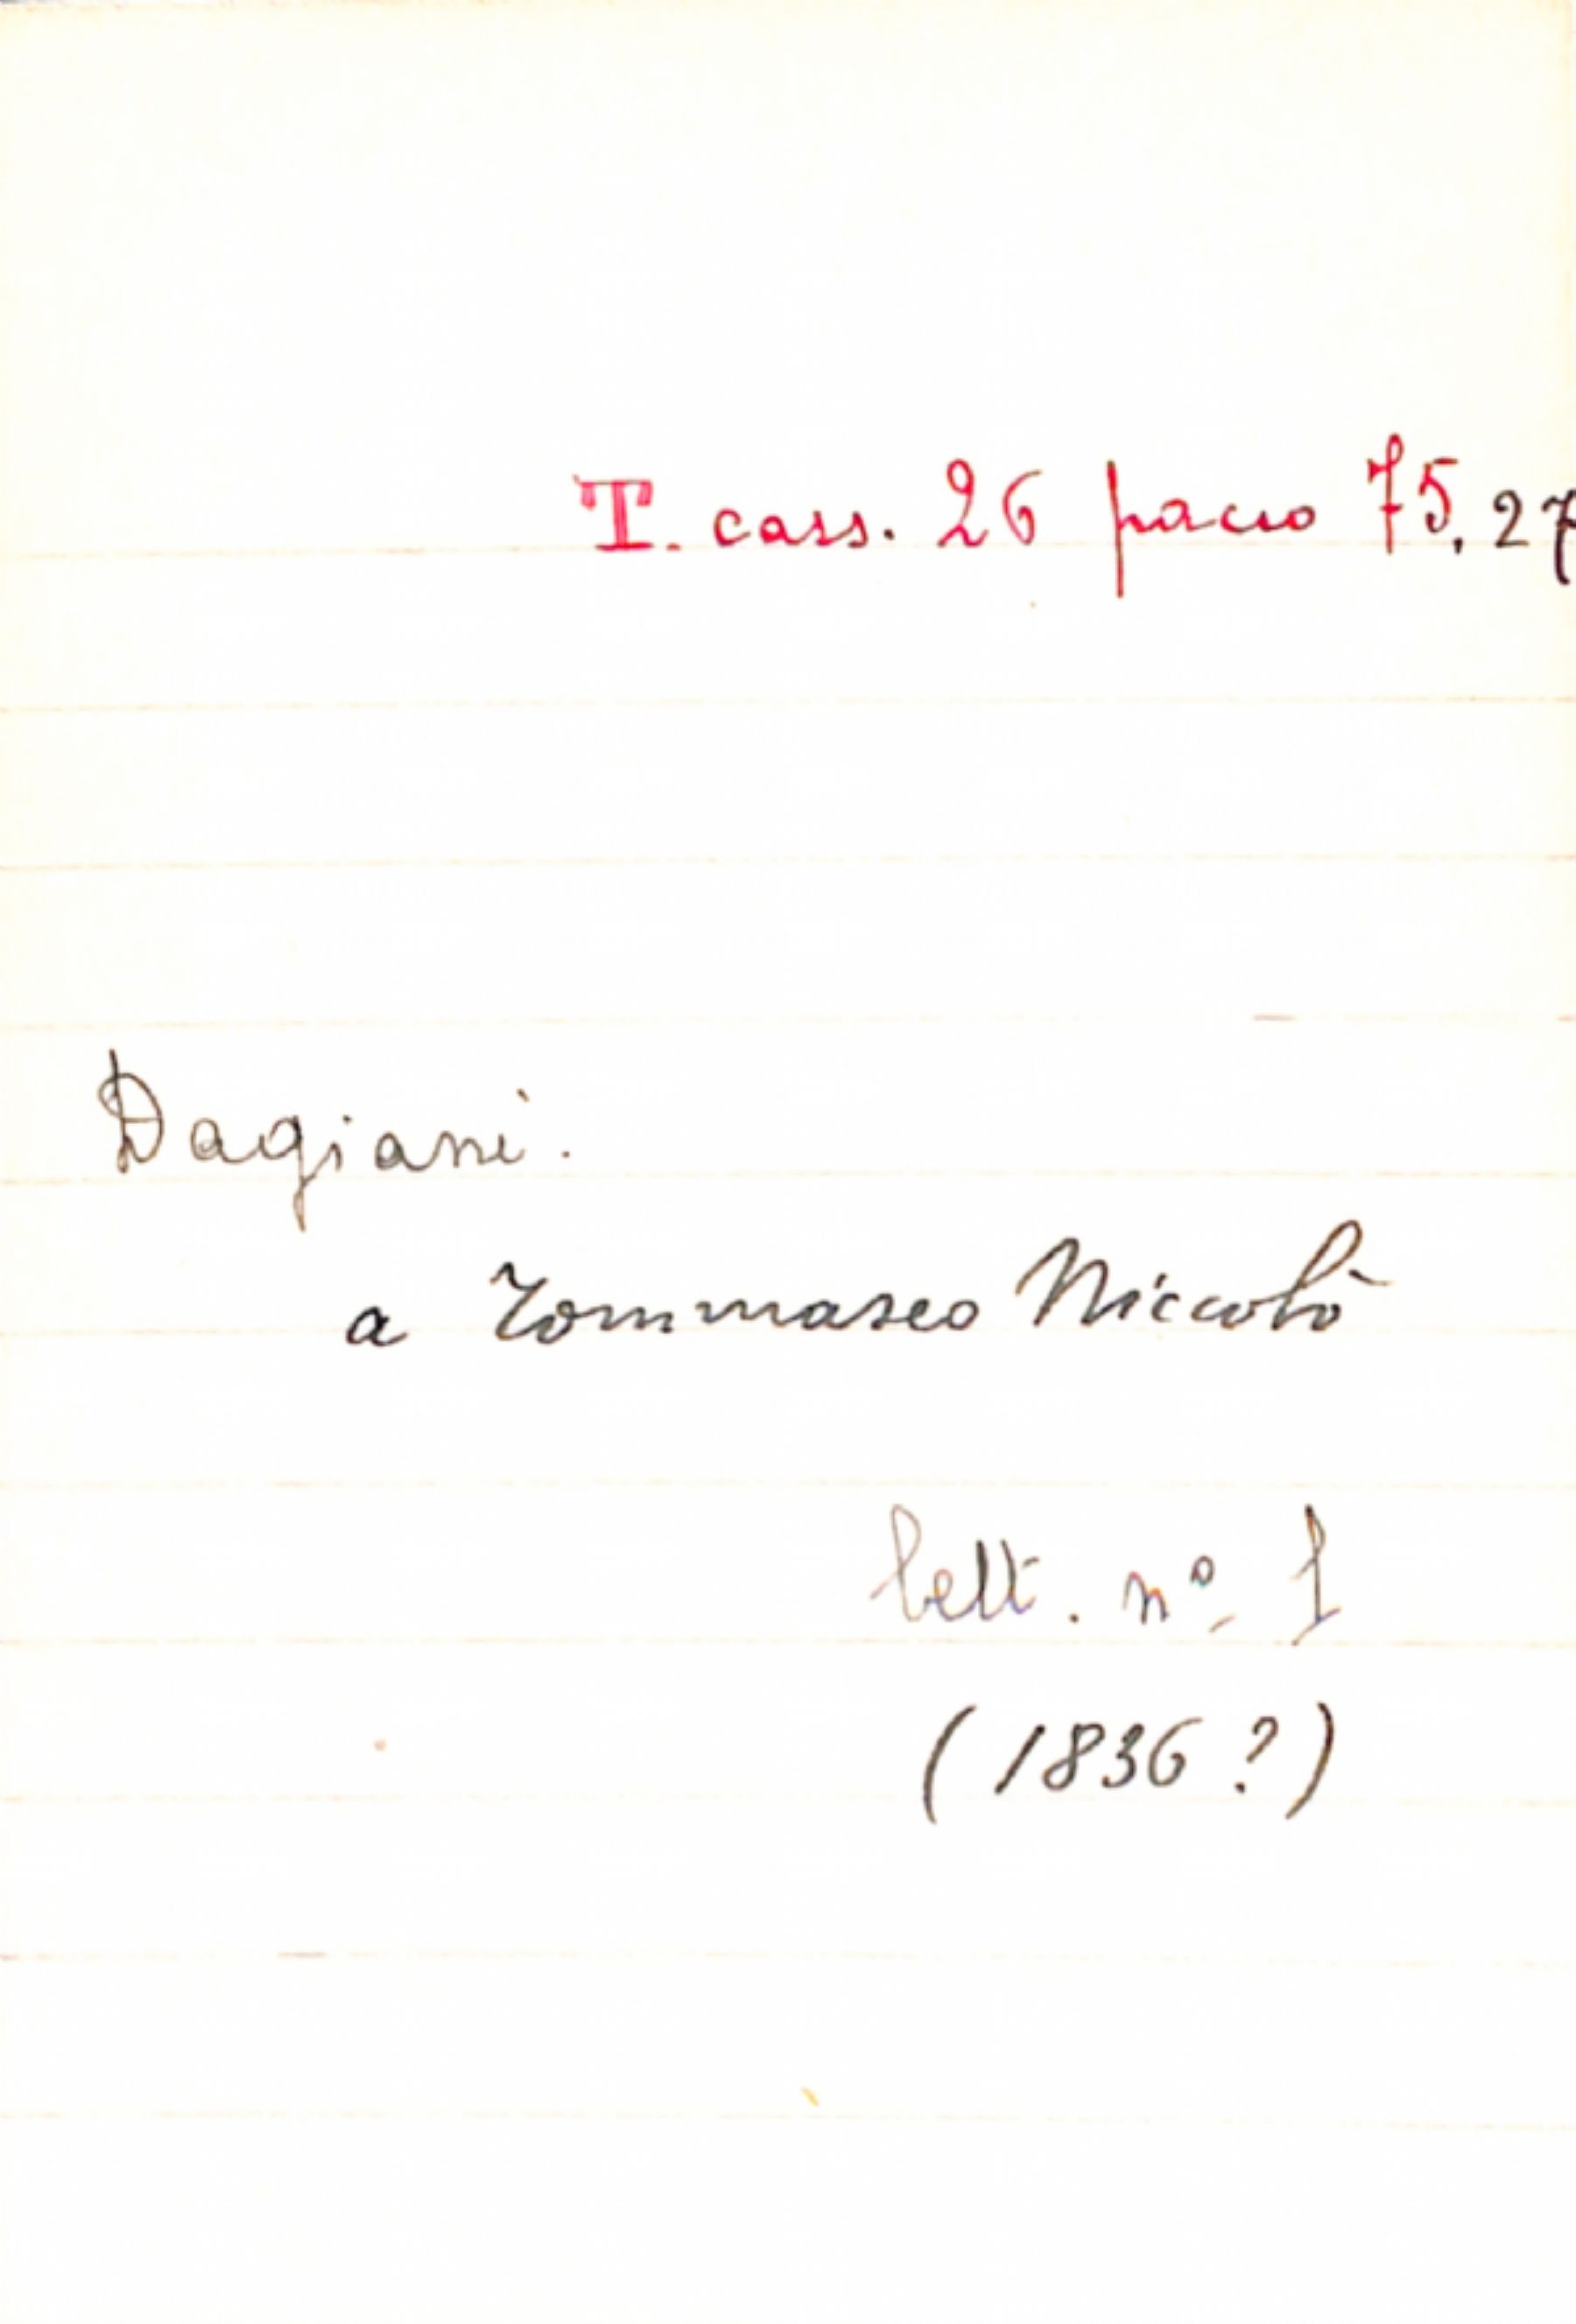 T. cass. 26 pacco 75, 27
Dagiani.
a Tommaseo Niccolò
lett. nº 1
(1836?)